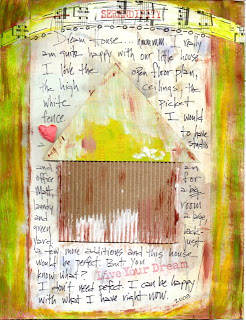 SERENDIPITY
Dream House.... mmmm really
am quite happy with our little house.
I love the open floor plan,
the high ceilings, the
white picket
fence I would
to have
a studio
and an
office for
Matt, a big
laundry room
and a big,
green back-
yard. just
a few more additions and this house
would be perfect. But you
know what? Live Your Dream
I don't need pefect I can be happy
with what I have right now.
2009